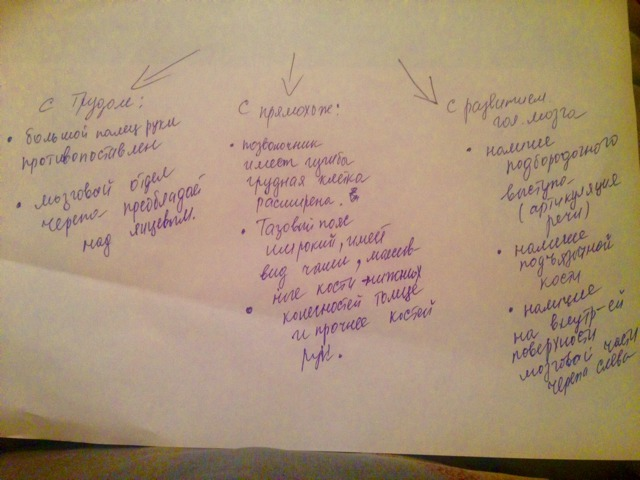 с трудом:
• большой палец руки
противопоставлен
• мозговой отдел
черепа преобладает
над лицевым.
С прямохож:
• позвоночник
имеет изгиба
грудная клетка
расширена.
• Тазовый пояс
широкий, имеет
вид чаши, массив-
ные кости нижних
• конечностей толще
и прочнее костей
рук.
с развитием
гол. мозга
• наличие
подбородочного
выступа
(артикуляция
речи)
• наличие
подъязычной
кости
• наличие
на внутр-ей
поверхности
мозговой части
черепа слева